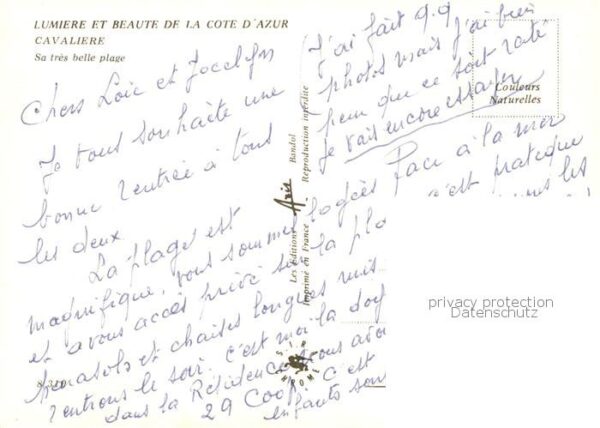 LUMIERE ET BEAUTE DE LA COTE D'AZUR
CAVALIERE
Sa très belle plage
Chers Loïc et Jocelyn
Je vous souhaite une
bonne rentrée à tous
les deux.
La plage est
magnifique, nous sommes logés face à la mer
et avons accès privé sur la pla
parasols et chaises longues mis
rentrons le soir. C'est moi la
dans la Résidence nous avo
29 C'est
enfants son
J'ai fait 9.9
photos mais j'ai bien
peur que ce soit raté
je vais encore essayer
c'est pratique
les
Couleurs
Naturelles
Les éditions Aris Bandol
Imprimé en France Reproduction interdite
privacy protection
Datenschutz